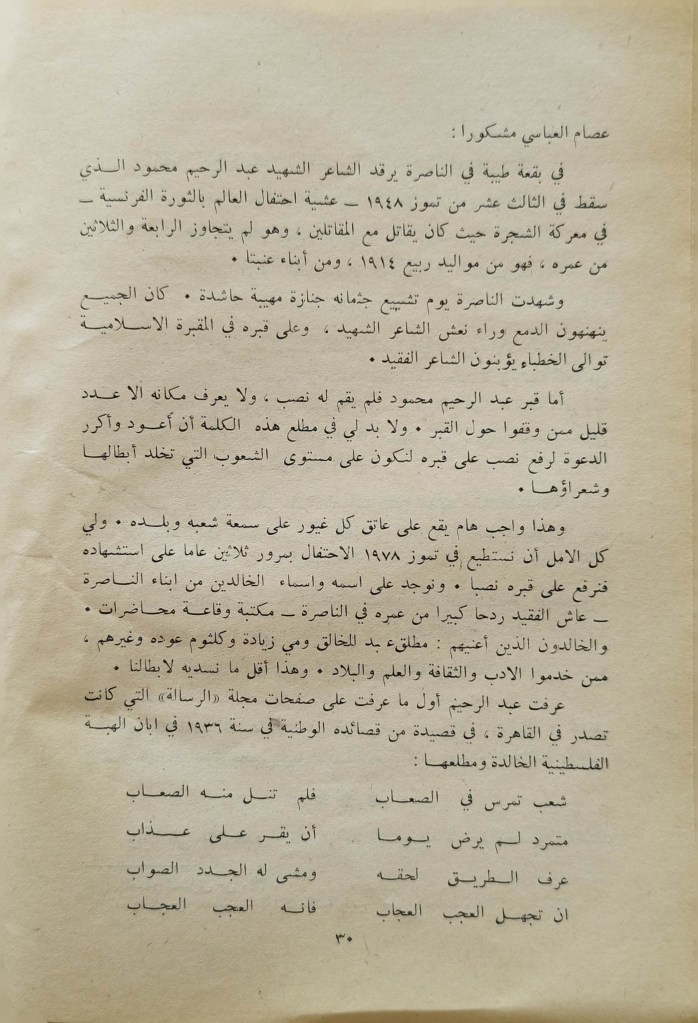 عصام العباسي مشكورا :
في بقعة طيبة في الناصرة يرقد الشاعر الشهيد عبد الرحيم محمود الـذي
سقط في الثالث عشر من تموز ١٩٤٨ ــ عشية احتفال العالم بالثورة الفرنسية ــ
في معركة الشجرة حيث كان يقاتل مع المقاتلين ، وهو لم يتجاوز الرابعة والثلاثين
من عمره ، فهو من مواليد ربيع ١٩١٤ ، ومن أبناء عنبتا ٠
وشهدت الناصرة يوم تشييع جثمانه جنازة مهيبة حاشدة ٠ كان الجميع
ينهنهون الدمع وراء نعش الشاعر الشهيد ، وعلى قبره في المقبرة الاسـلاميـة
توالى الخطباء يؤبنون الشاعر الفقيد ٠
أما قبر عبد الرحيم محمود فلم يقم له نصب ، ولا يعرف مكانه الا عـدد
قليل ممن وقفوا حول القبر ٠ ولا بد لي في مطلع هذه الكلمة أن أعود وأكرر
الدعوة لرفع نصب على قبره لنكون على مستوى الشعوب التي تخلد أبطالهـا
وشعراؤهـا ٠
وهذا واجب هام يقع على عاتق كل غيور على سمعة شعبه وبلـده ٠ ولي
كل الامل أن نستطيع في تموز ١٩٧٨ الاحتفال بمرور ثلاثين عاما على استشهاده
فنرفع على قبره نصبا ٠ ونوجد على اسمه واسماء الخالدين من ابناء النـاصرة
ــ عاش الفقيد ردحا كبيرا من عمره في الناصرة ــ مكتبة وقاعـة محـاضرات ٠
والخالدون الذين أعنيهم : مطلق عبد الخالق ومي زيادة وكلثوم عوده وغيرهم ،
ممن خدموا الادب والثقافة والعلم والبلاد ٠ وهذا أقل ما نسديه لابطالنا ٠
عرفت عبد الرحيم أول ما عرفت على صفحات مجلة «الرسالة» التي كانت
تصدر في القاهرة ، في قصيدة من قصائده الوطنية في سنة ١٩٣٦ في ابان الهبـة
الفلسطينية الخالدة ومطلعهـا :
شعب تمرس في الصعـاب فلم تنـل منـه الصعـاب
متمرد لـم يرض يـومـا أن يقـر علـى عـذاب
عرف الـطريـق لحقـه ومشى له الجـدد الصواب
ان تجهـل العجب العجاب فانـه العجب العجـاب
٣٠